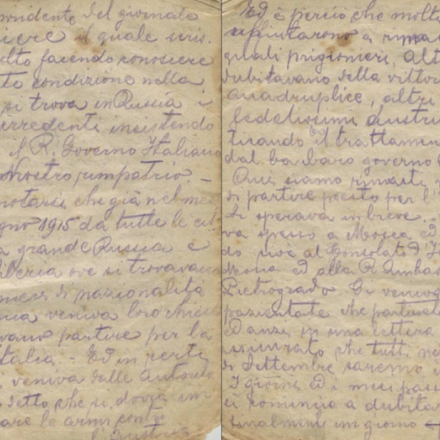 pondente del giornale
iere il quale scris
olto facendo conoscere
te condizione nella
si trova in Russia i
irredenti insistendo
il R. Governo Italiano
Nostro rimpatrio -
notarsi che già nel me
gno 1915 da tutte le cit
a grande Russia e
iberia ove si trovavano
nieri di nazionalità
na veniva loro chies
vano partire per la
talia - Ed in certi
veniva dalle autorit
detto che si dovea im
are le armi contr
l'Austria
Ed è perciò che molti
si rifiutarono a rimane
quali prigionieri, alt
dubitavano della vittor
quadruplice, altri
fedelissimi austri
tirando il trattamen
dal barbaro governo
Qui siamo rimasti
di partire presto per l'
si sperava in breve
va spesso a Mosca ed
do vive al Consolato d'I
Mosca ed alla R. Amba
Pietrogrado Ci veniva
pazientate che partirete
Danza in una lettera
nunziato che tutti no
di Settembre saremo
I giorni ed i mesi pas
si comincia a dubita
finalmente un giorno